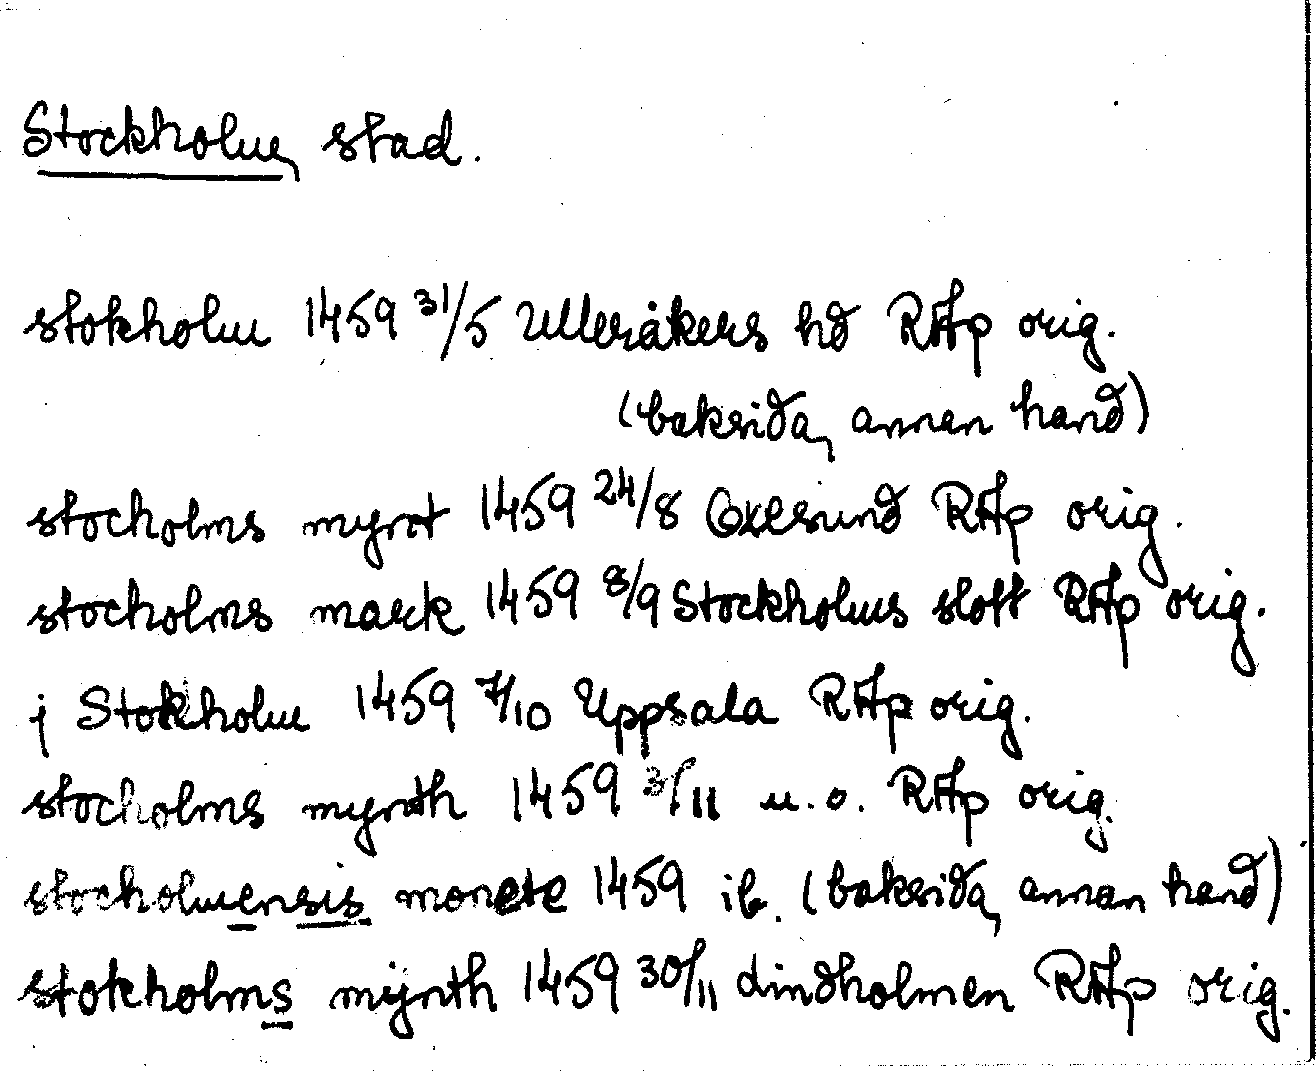 Stockholm, stad.
stokholm 1459 31/5 Ulleråkers hd RAp orig.
(baksida, annan hand)
stocholms mynt 1459 24/8 Oxesund RAp orig.
stocholms marck 1459 8/9 Stockholms slott RAp orig.
j Stokholm 1459 7/10 Uppsala RAp orig.
stocholms mynth 1459 3/11 u.o. RAp orig.
stocholmensis monete 1459 ib. (baksida, annan hand)
stokholms mijnth 1459 30/11 Lindholmen RAp orig.